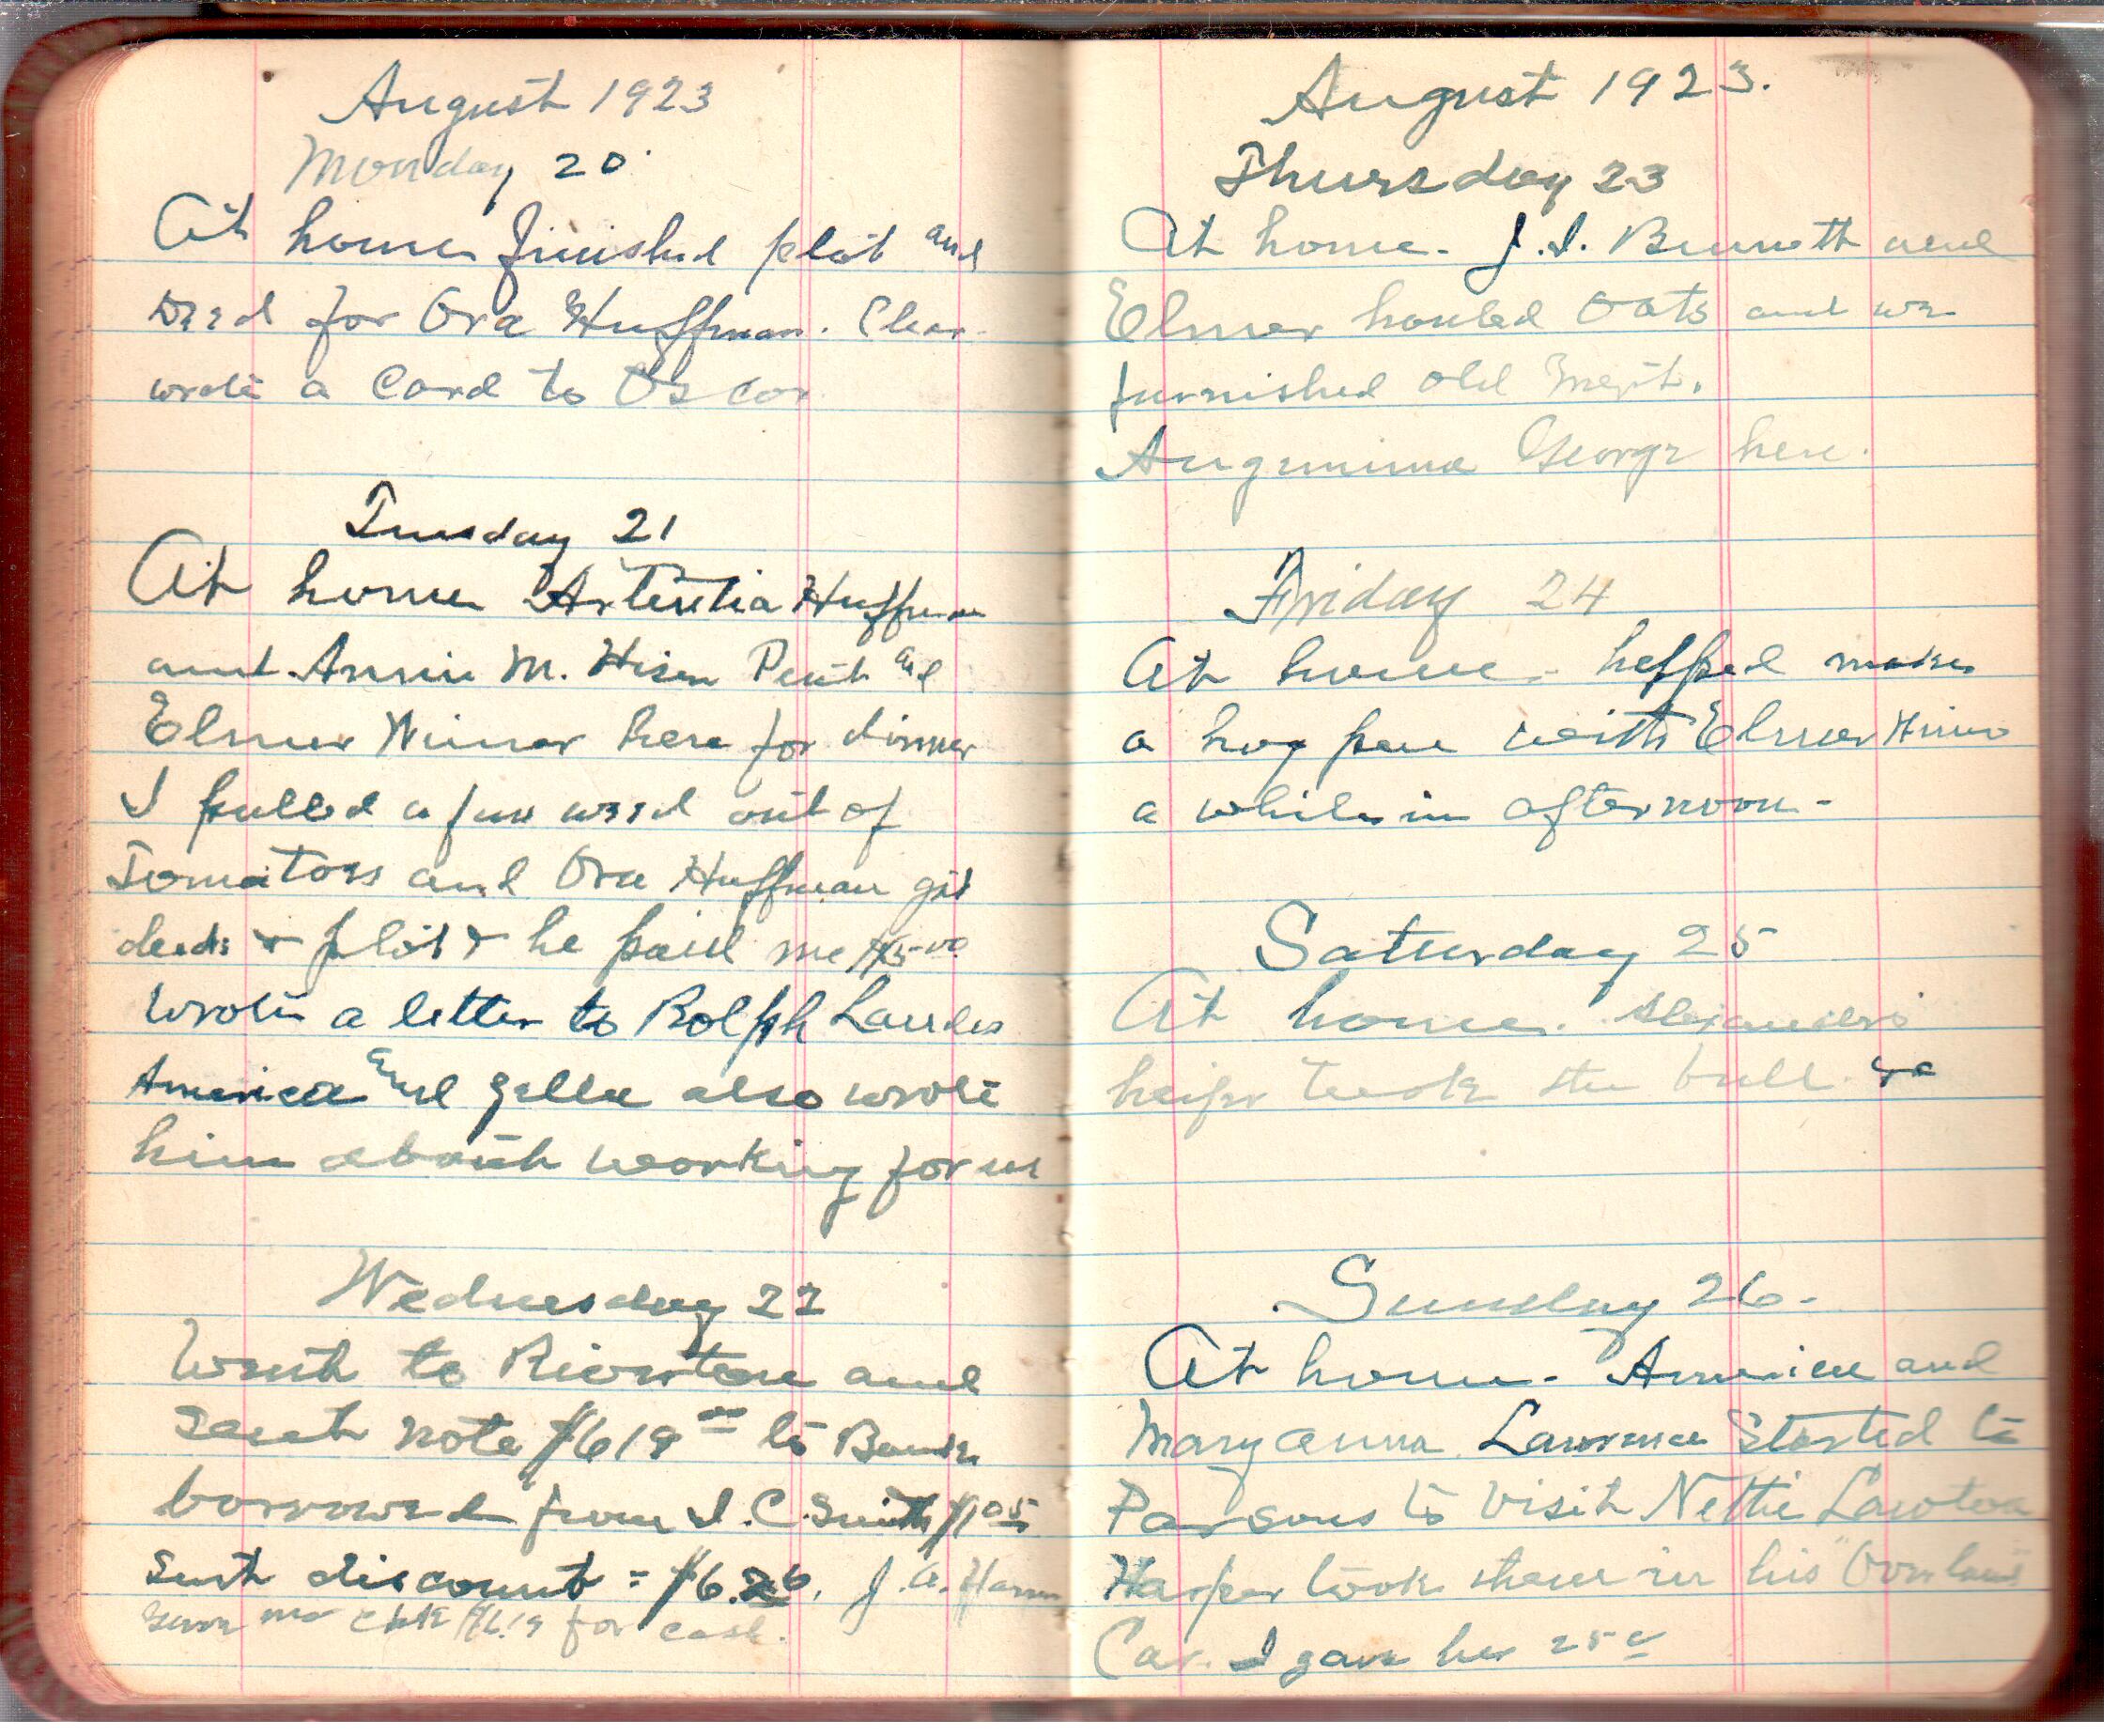 August 1923
Monday 20
At home finished plat and
Deed for Ora Huffman. Clear.
wrote a Card to Oscar
Tuesday 21
At home Artentia Huffman
and Annie M. Hiser Pent and
Elmer Wimer here for dinner
I pulled a few weed out of
Tomatoes and Ora Huffman got
deeds & plot & he paid me $5.00
wrote a letter to Rolph Landes
America and Zella also wrote
him about working for us
Wednesday 22
Went to Riverton and
note $619 00 to Bank
borrowed from I.C. Smith $1 05
Sent discount = $6.26. J.A. Harper
gave me chk $6.19 for cash.
August 1923.
Thursday 23
At home. J.I. Bennett and
Elmer hauled Oats and we
furnished old
George here.
Friday 24
At home - helped make
a hog pen with Elmer Wimer
a while in afternoon -
Saturday 25
At home. Alexanders
heifer took the bull
Sunday 26 -
At home - America and
Mary Anna Lawrence Started to
Parsons to Visit Nettie Lawton
Harper took them in his "Overland"
Car. I gave her 25c